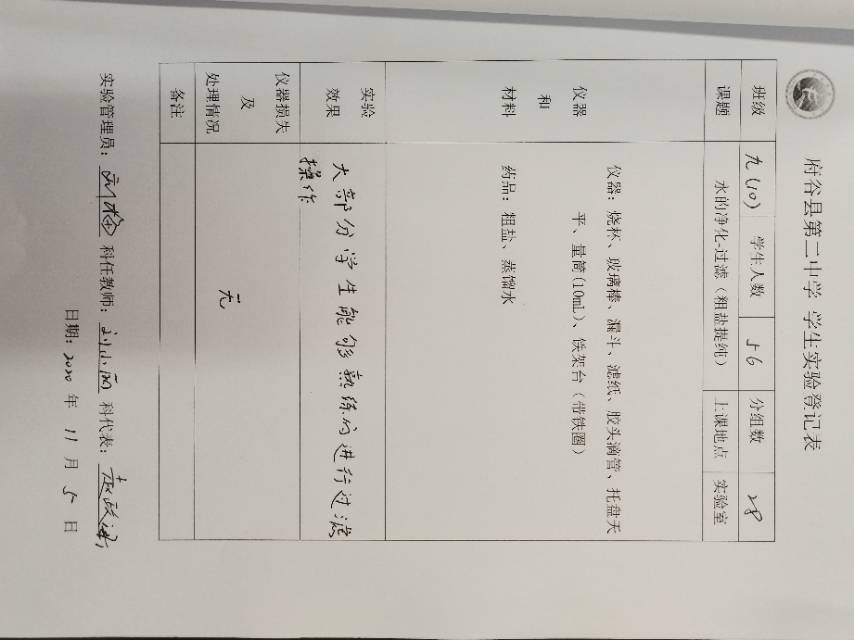 府谷县第二中学 学生实验登记表
班级 九(10) 学生人数 56 分组数 28
课题 水的净化-过滤（粗盐提纯） 上课地点 实验室
仪器
和
材料
仪器：烧杯、玻璃棒、漏斗、滤纸、胶头滴管、托盘天
平、量筒(10mL)、铁架台（带铁圈）
药品：粗盐、蒸馏水
实验
效果
大部分学生能够熟练的进行过滤
操作
仪器损失
及
处理情况
无
备注
实验管理员： 科任教师：刘小 科代表：
日期：2020 年 11 月 5 日